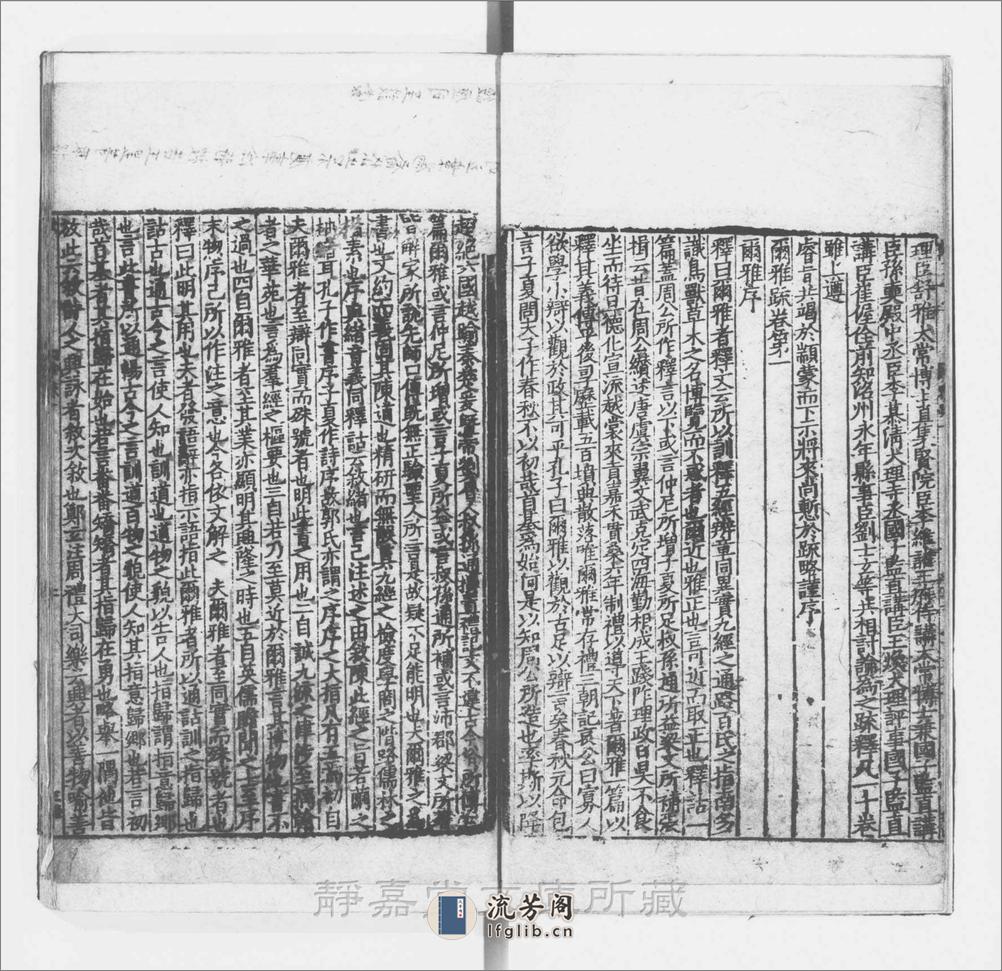 理臣舒雅太常博士直集賢院臣李維諸王府侍講太常博士兼國子監直講
臣孫奭殿中丞臣李慕清大理寺丞國子監直講臣王煥大理評事國子監直
講臣崔偓佺前知洺州永年縣事臣劉士玄等共相討論為之疏釋凡一十卷
雖上遵
睿旨共竭於顓蒙而下示將來尚慙於疏略謹序
爾雅疏卷第一
爾雅序
釋曰爾雅者釋文云所以訓釋五經辨章同異實九經之通路百氏之指南多
識鳥獸草木之名博覽而不惑者也爾近也雅正也言可近而取正也釋詁一
篇蓋周公所作釋言以下或言仲尼所增子夏所足叔孫通所益梁文所補張
揖云昔在周公纘述唐虞宗翼文武克定四海勤相成王踐阼理政日昃不食
坐而待旦德化宣流越裳來貢嘉禾貫桑六年制禮以導天下著爾雅一篇以
釋其義傳乎後孠歷載五百墳典散落唯爾雅常存禮三朝記哀公曰寡人
欲學小辯以觀於政其可乎孔子曰爾雅以觀於古足以辯言矣春秋元命包
言子夏問夫子作春秋不以初哉首基為始何是以知周公所造也率斯以降
超絕六國越踰秦楚爰曁帝劉魯人叔孫通撰置禮記文不違古今俗所傳三
篇爾雅或言仲尼所增或言子夏所益或言叔孫通所補或言沛郡梁文所考
皆解家所說先師口傳既無正驗聖人所言是故疑不足能明也夫爾雅之為
書也文約而義固其陳道也精研而無誤真九經之檢度學問之階路儒林之
楷素也序與緒音義同釋詁云敘緒也
夫爾雅者至辯同實而殊號者也明此書之用也二自誠九流之津涉至摛翰
者之華苑也言為羣經樞要也三自若乃至莫近於爾雅言其博物
之過也四自爾雅者至其業亦顯明其興隆之時也五自英儒贍聞之士至序
末物序己所以作注之意也今各依文解之　夫爾雅者至同實而殊號者也
釋曰此明其用也夫者發語辭亦指示語指此爾雅者所以通詁訓之指歸也
詁古也通古今之言使人知也訓道也道物之貌以告人也指歸謂指意歸鄉
也言此書所以通暢古今之言訓道百物之貌使人知其指意歸鄉也若言初
哉首基者其指歸在始也若言番番矯矯者其指歸在勇也略舉一隅他皆
放此云敘詩人之興詠者敘次敘也鄭玄注周禮大司樂云興者以善物喻善
靜嘉堂文庫所藏
流芳阁
lfglib.cn